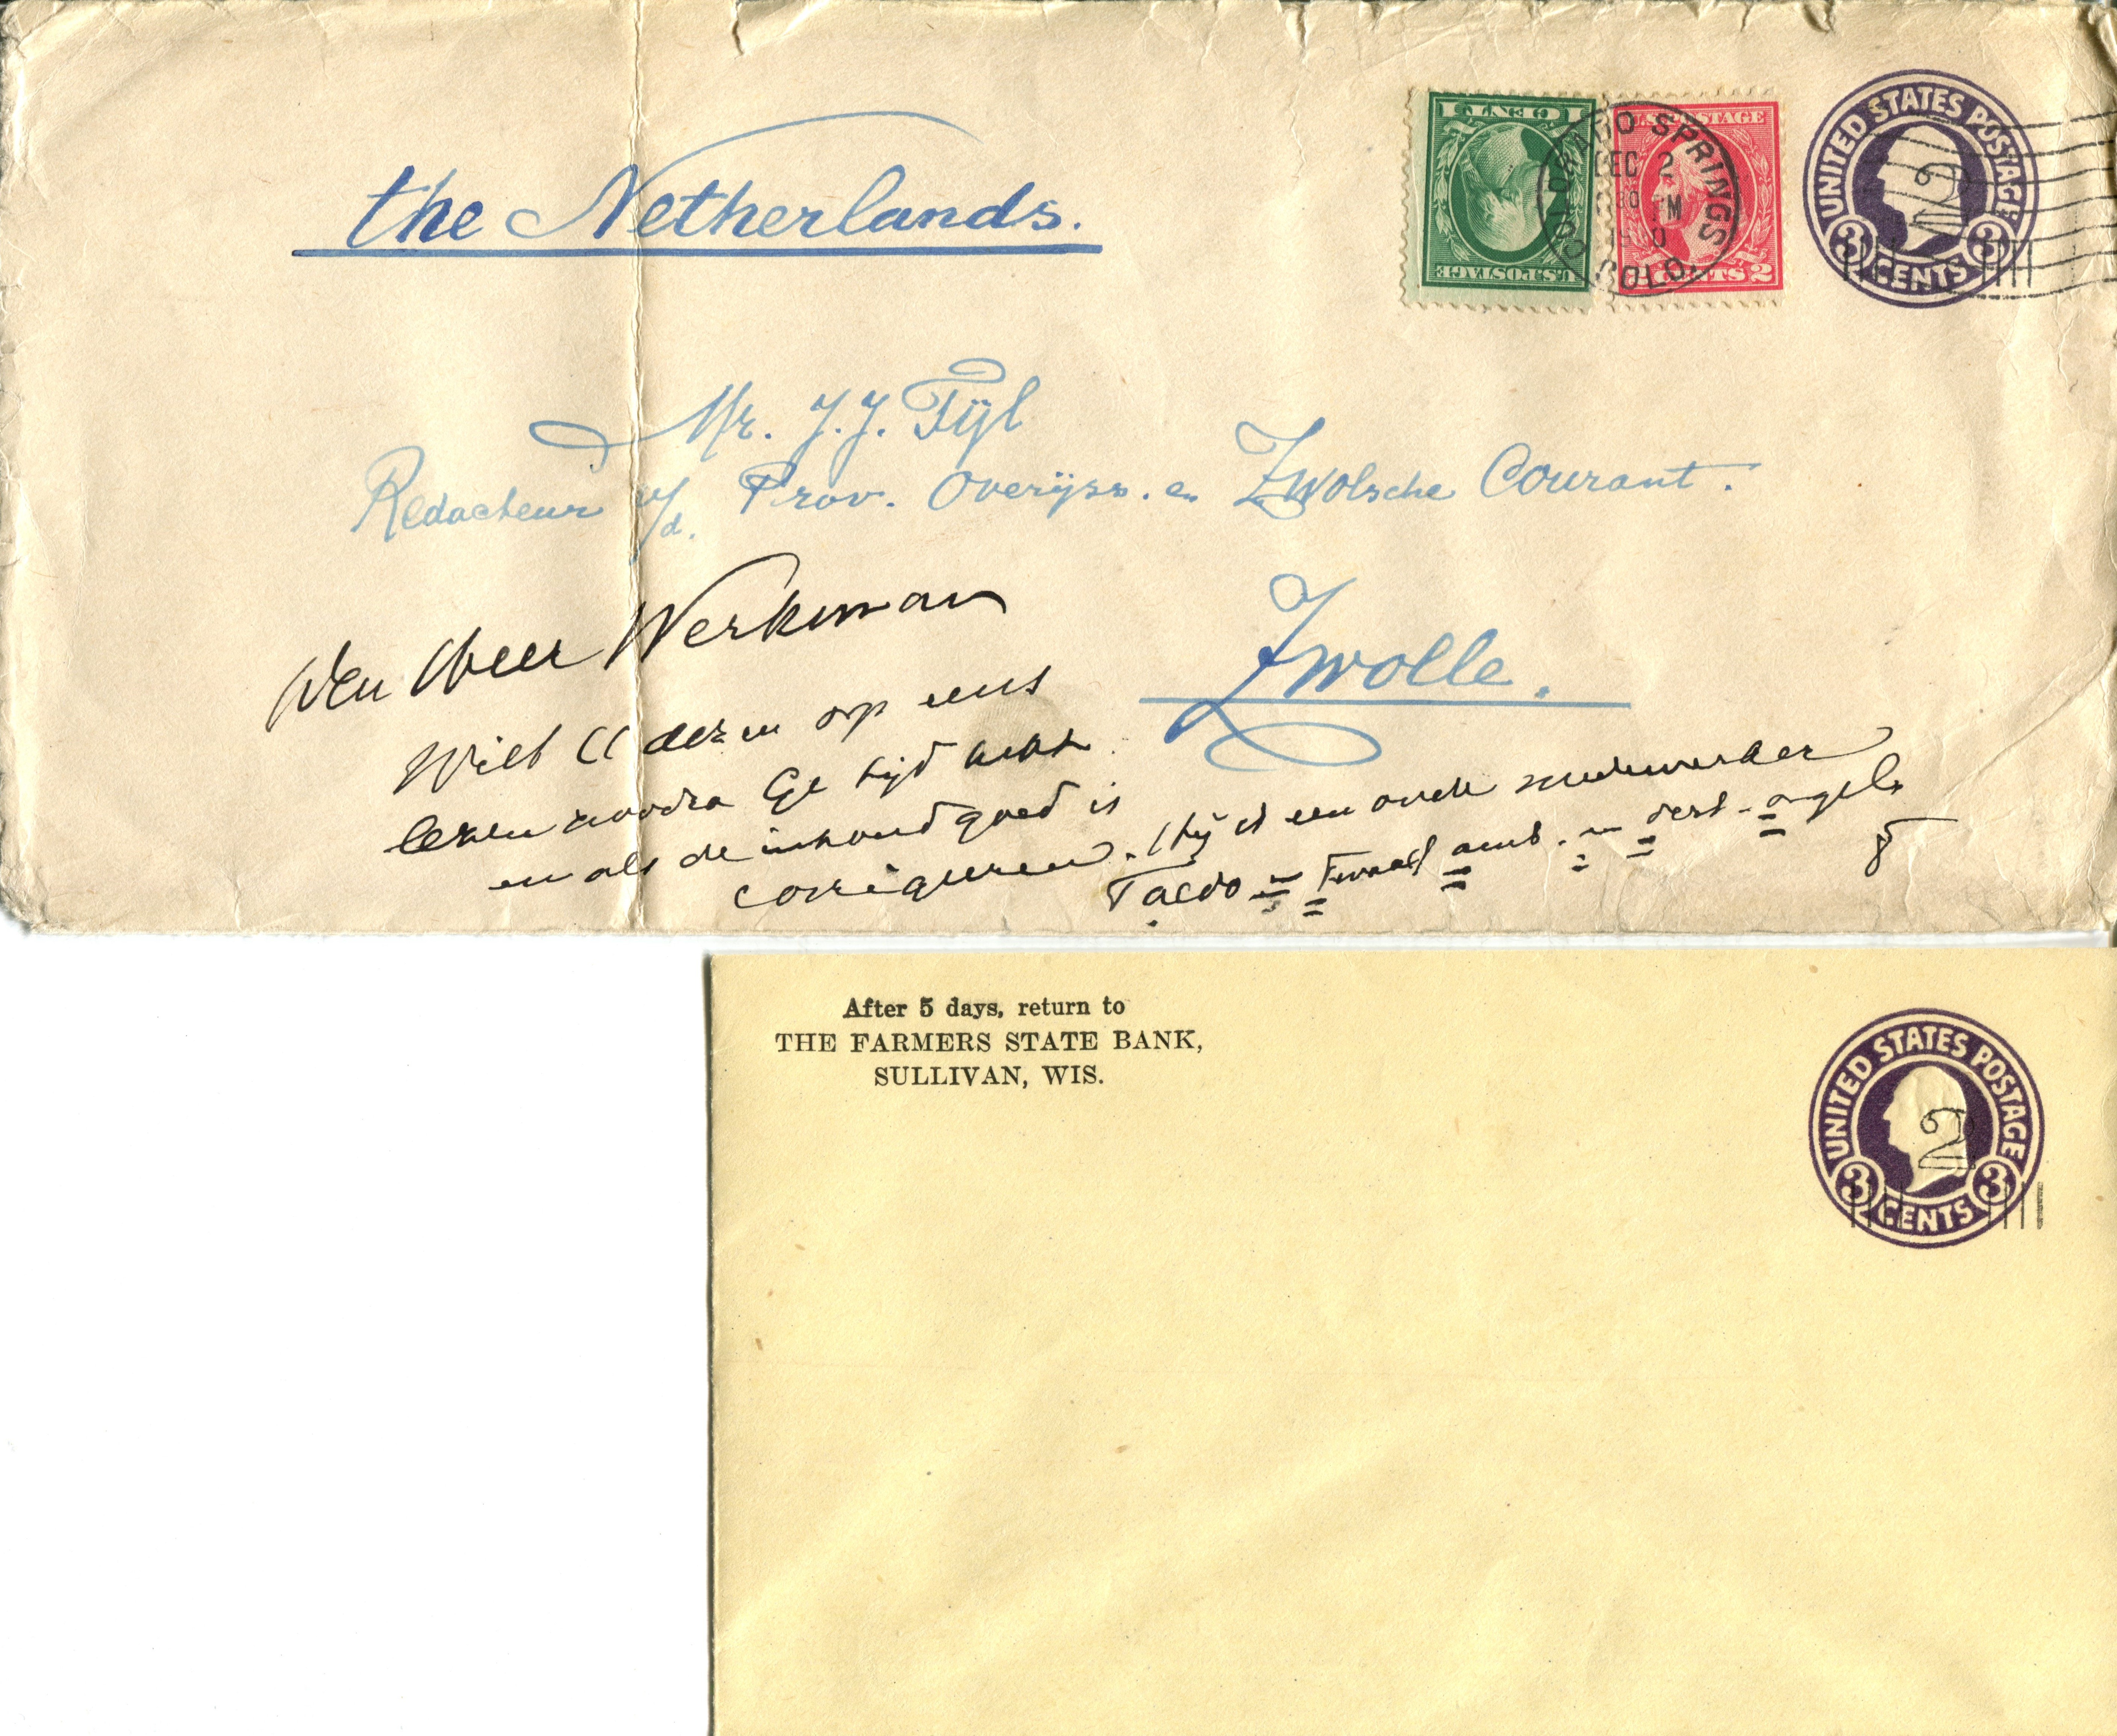 the Netherlands.
1 CENT 1
U.S. POSTAGE
U.S. POSTAGE
CENTS 2
COLORADO SPRINGS
DEC 2
COLO.
UNITED STATES POSTAGE
3 CENTS 3
2
Mr. J. J. Tijl
Redacteur v/d. Prov. Overijss. en Zwolsche Courant.
Zwolle.
Den Heer Werkman
Wilt U deze op eens
lezen zoodra Ge tijd hebt
en als de inhoud goed is
corrigeeren. (Hij is een oude medewerker
After 5 days, return to
THE FARMERS STATE BANK,
SULLIVAN, WIS.
UNITED STATES POSTAGE
3 CENTS 3
2